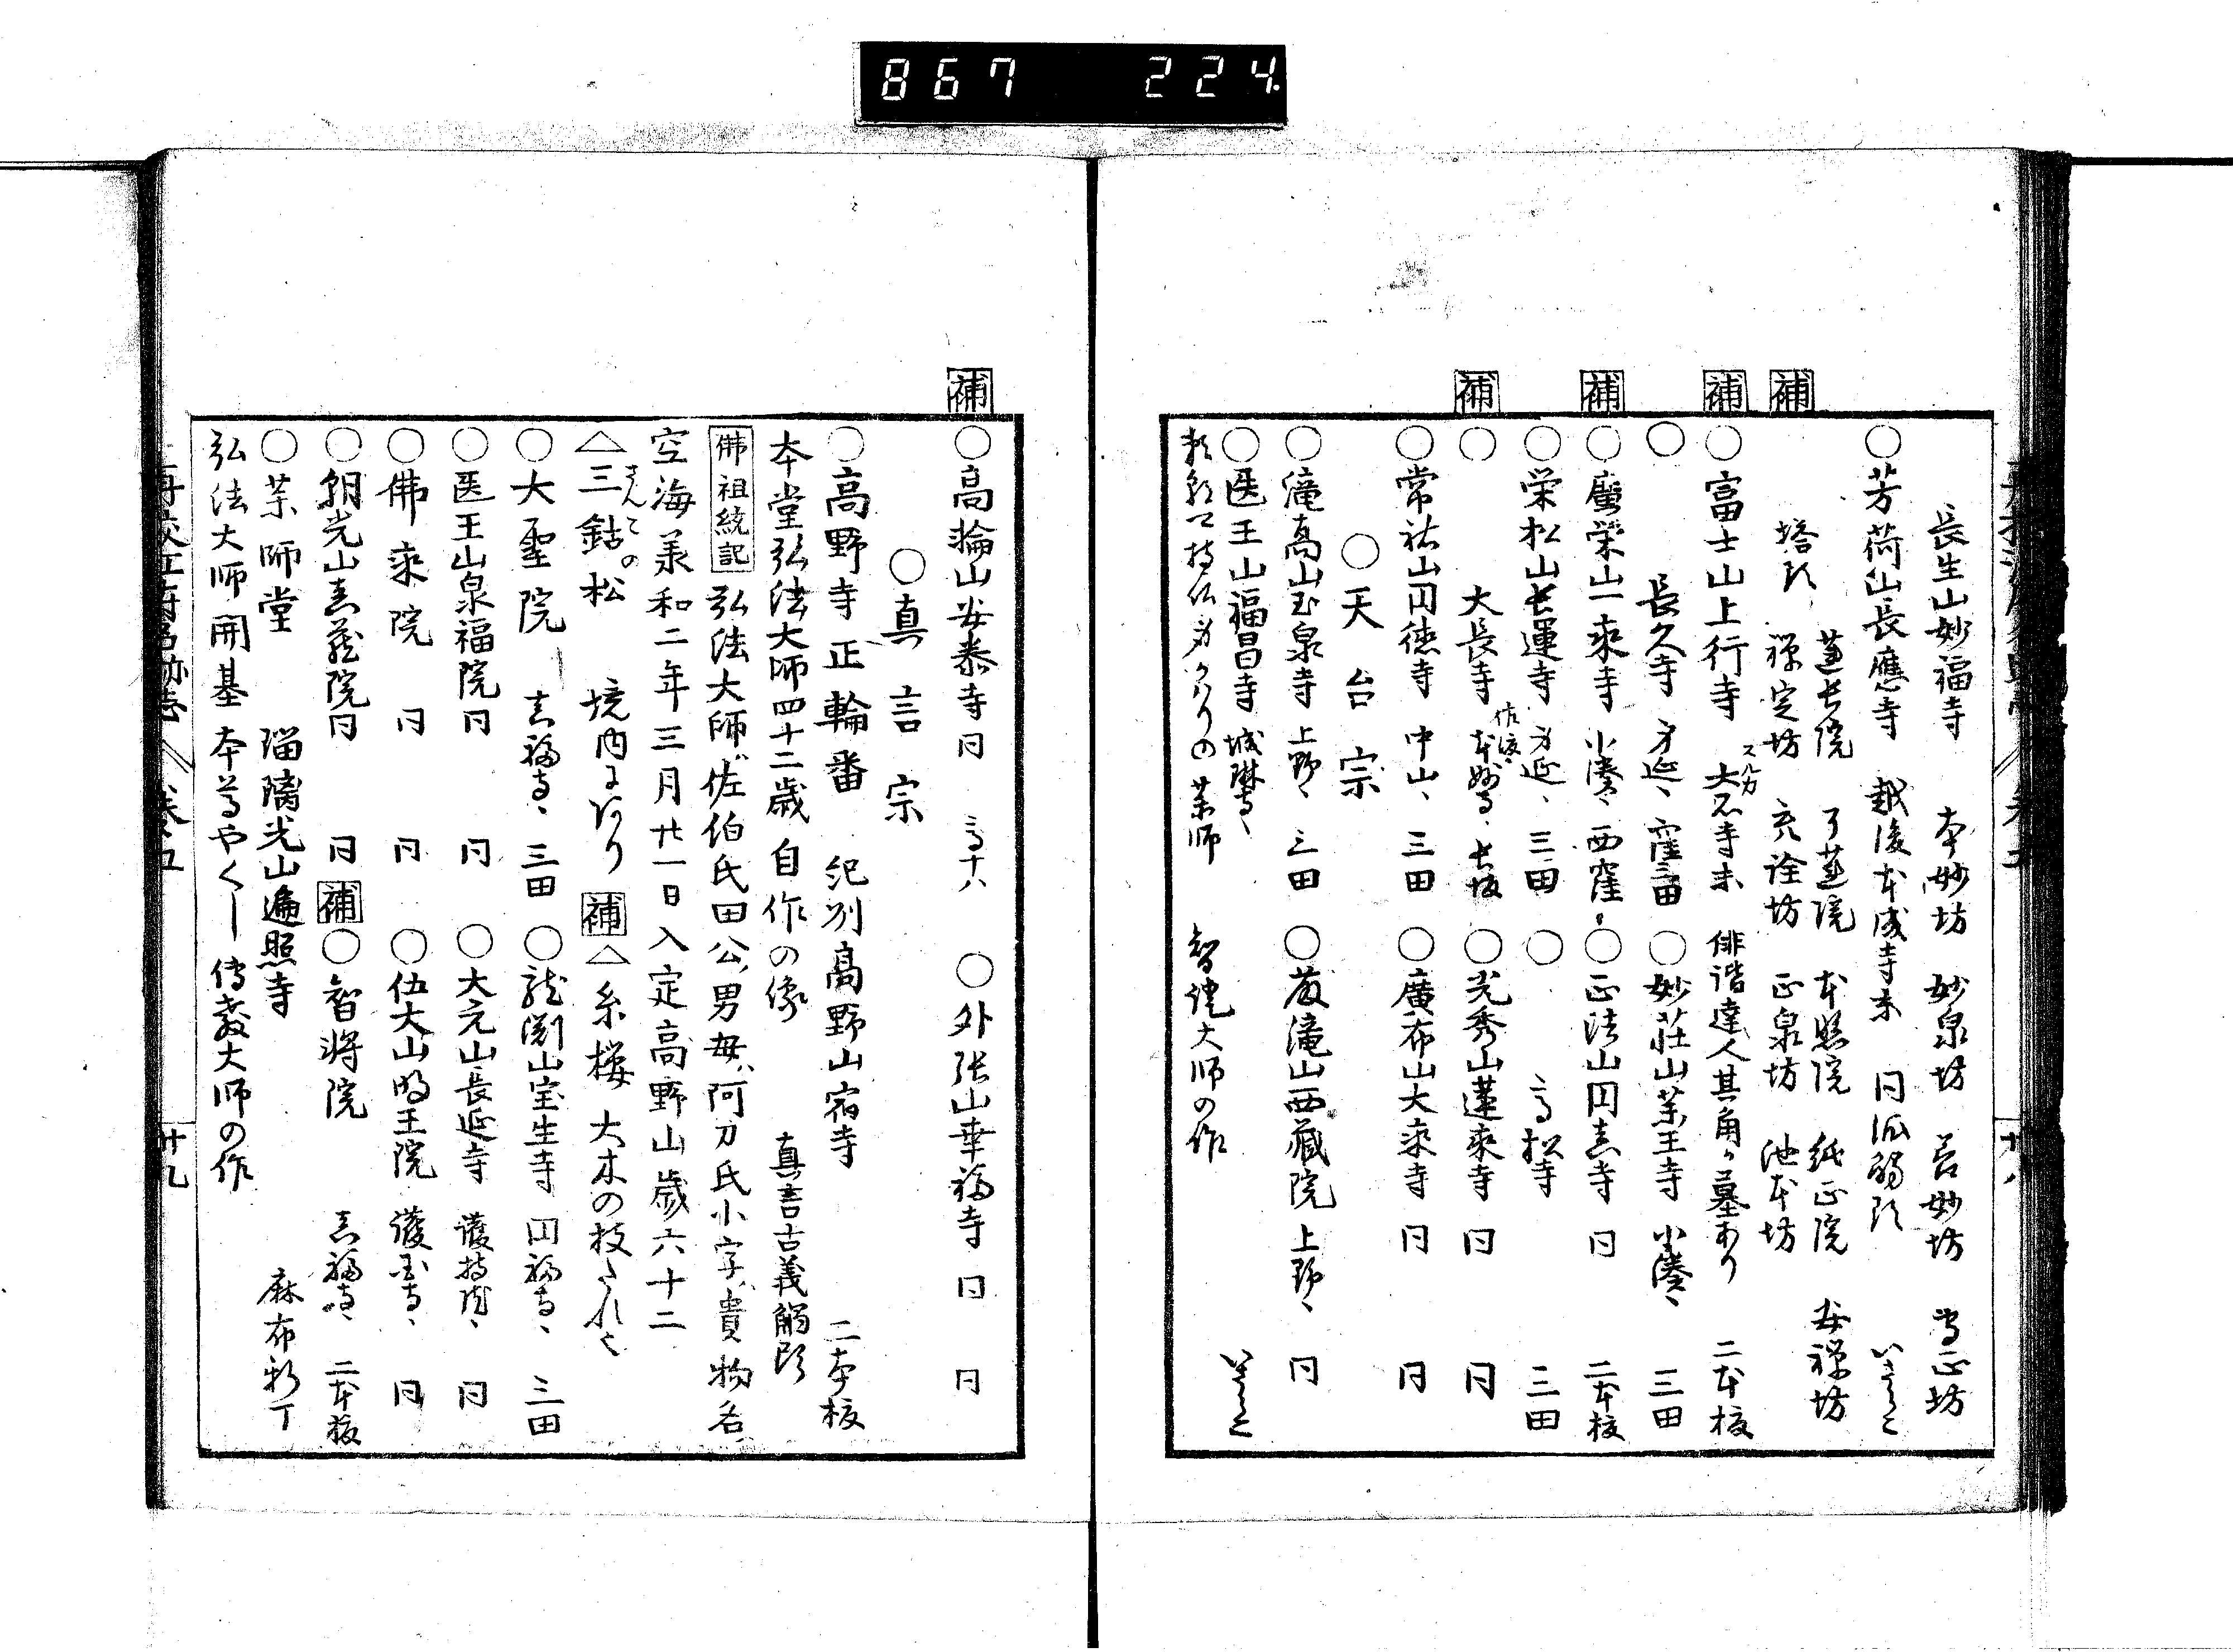 867 224.
長生山妙福寺 本妙坊 妙泉坊 善妙坊 常正坊
○芳荷山長應寺 越後本成寺末 同派觸頭 いさらこ
蓮長院 了蓮院 本照院 純正院 安禅坊
補
塔頭 禅定坊 充詮坊 正泉坊 池本坊
補
○富士山上行寺 スルガ大石寺末 俳諧達人其角ヶ墓あり 二本榎
○ 長久寺 身延、 窪三田 ○妙荘山薬王寺 小湊、 三田
補
○蜜栄山一乗寺 小湊、 西窪、 ○正法山円真寺 同 二本榎
○栄松山長運寺 身延、 三田 ○ 高松寺 三田
補
○ 大長寺 佐渡本妙寺、 長坂 ○光秀山蓮乗寺 同 同
○常祐山円徳寺 中山、 三田 ○廣布山大乗寺 同 同
○天台宗
○滝高山玉泉寺 上野、 三田 ○薮滝山西蔵院 上野、 同
○医王山福昌寺 城琳寺、 いさらこ
頼朝公持仏 の薬師 智證大師の作
補
○高輪山安泰寺 同 ○外張山幸福寺 同 同
○真言宗
○高野寺 正輪番 紀州高野山宿寺 二本榎
本堂弘法大師四十二歳自作の像 真言古義觸頭
佛祖統記 弘法大師ハ佐伯氏田公ノ男母ハ阿刀氏小字ハ貴物名ハ
空海承和二年三月廿一日入定高野山歳六十二
△三鈷松 さんこの 境内にあり 補 △糸桜 大木の枝たれて
○大聖院 真福寺、 三田 ○龍渕山宝生寺 円福寺、 三田
○医王山泉福院 同 同 ○大元山長延寺 護持院、 同
○佛乗院 同 同 ○伍大山明王院 護国寺、 同
○朝光山真蔵院 同 同 補 ○智将院 真福寺、 二本榎
○薬師堂 瑠璃光山遍照寺 麻布新丁
弘法大師開基 本尊やくし 傳教大師の作
再校江府名跡志 巻之五 廿九